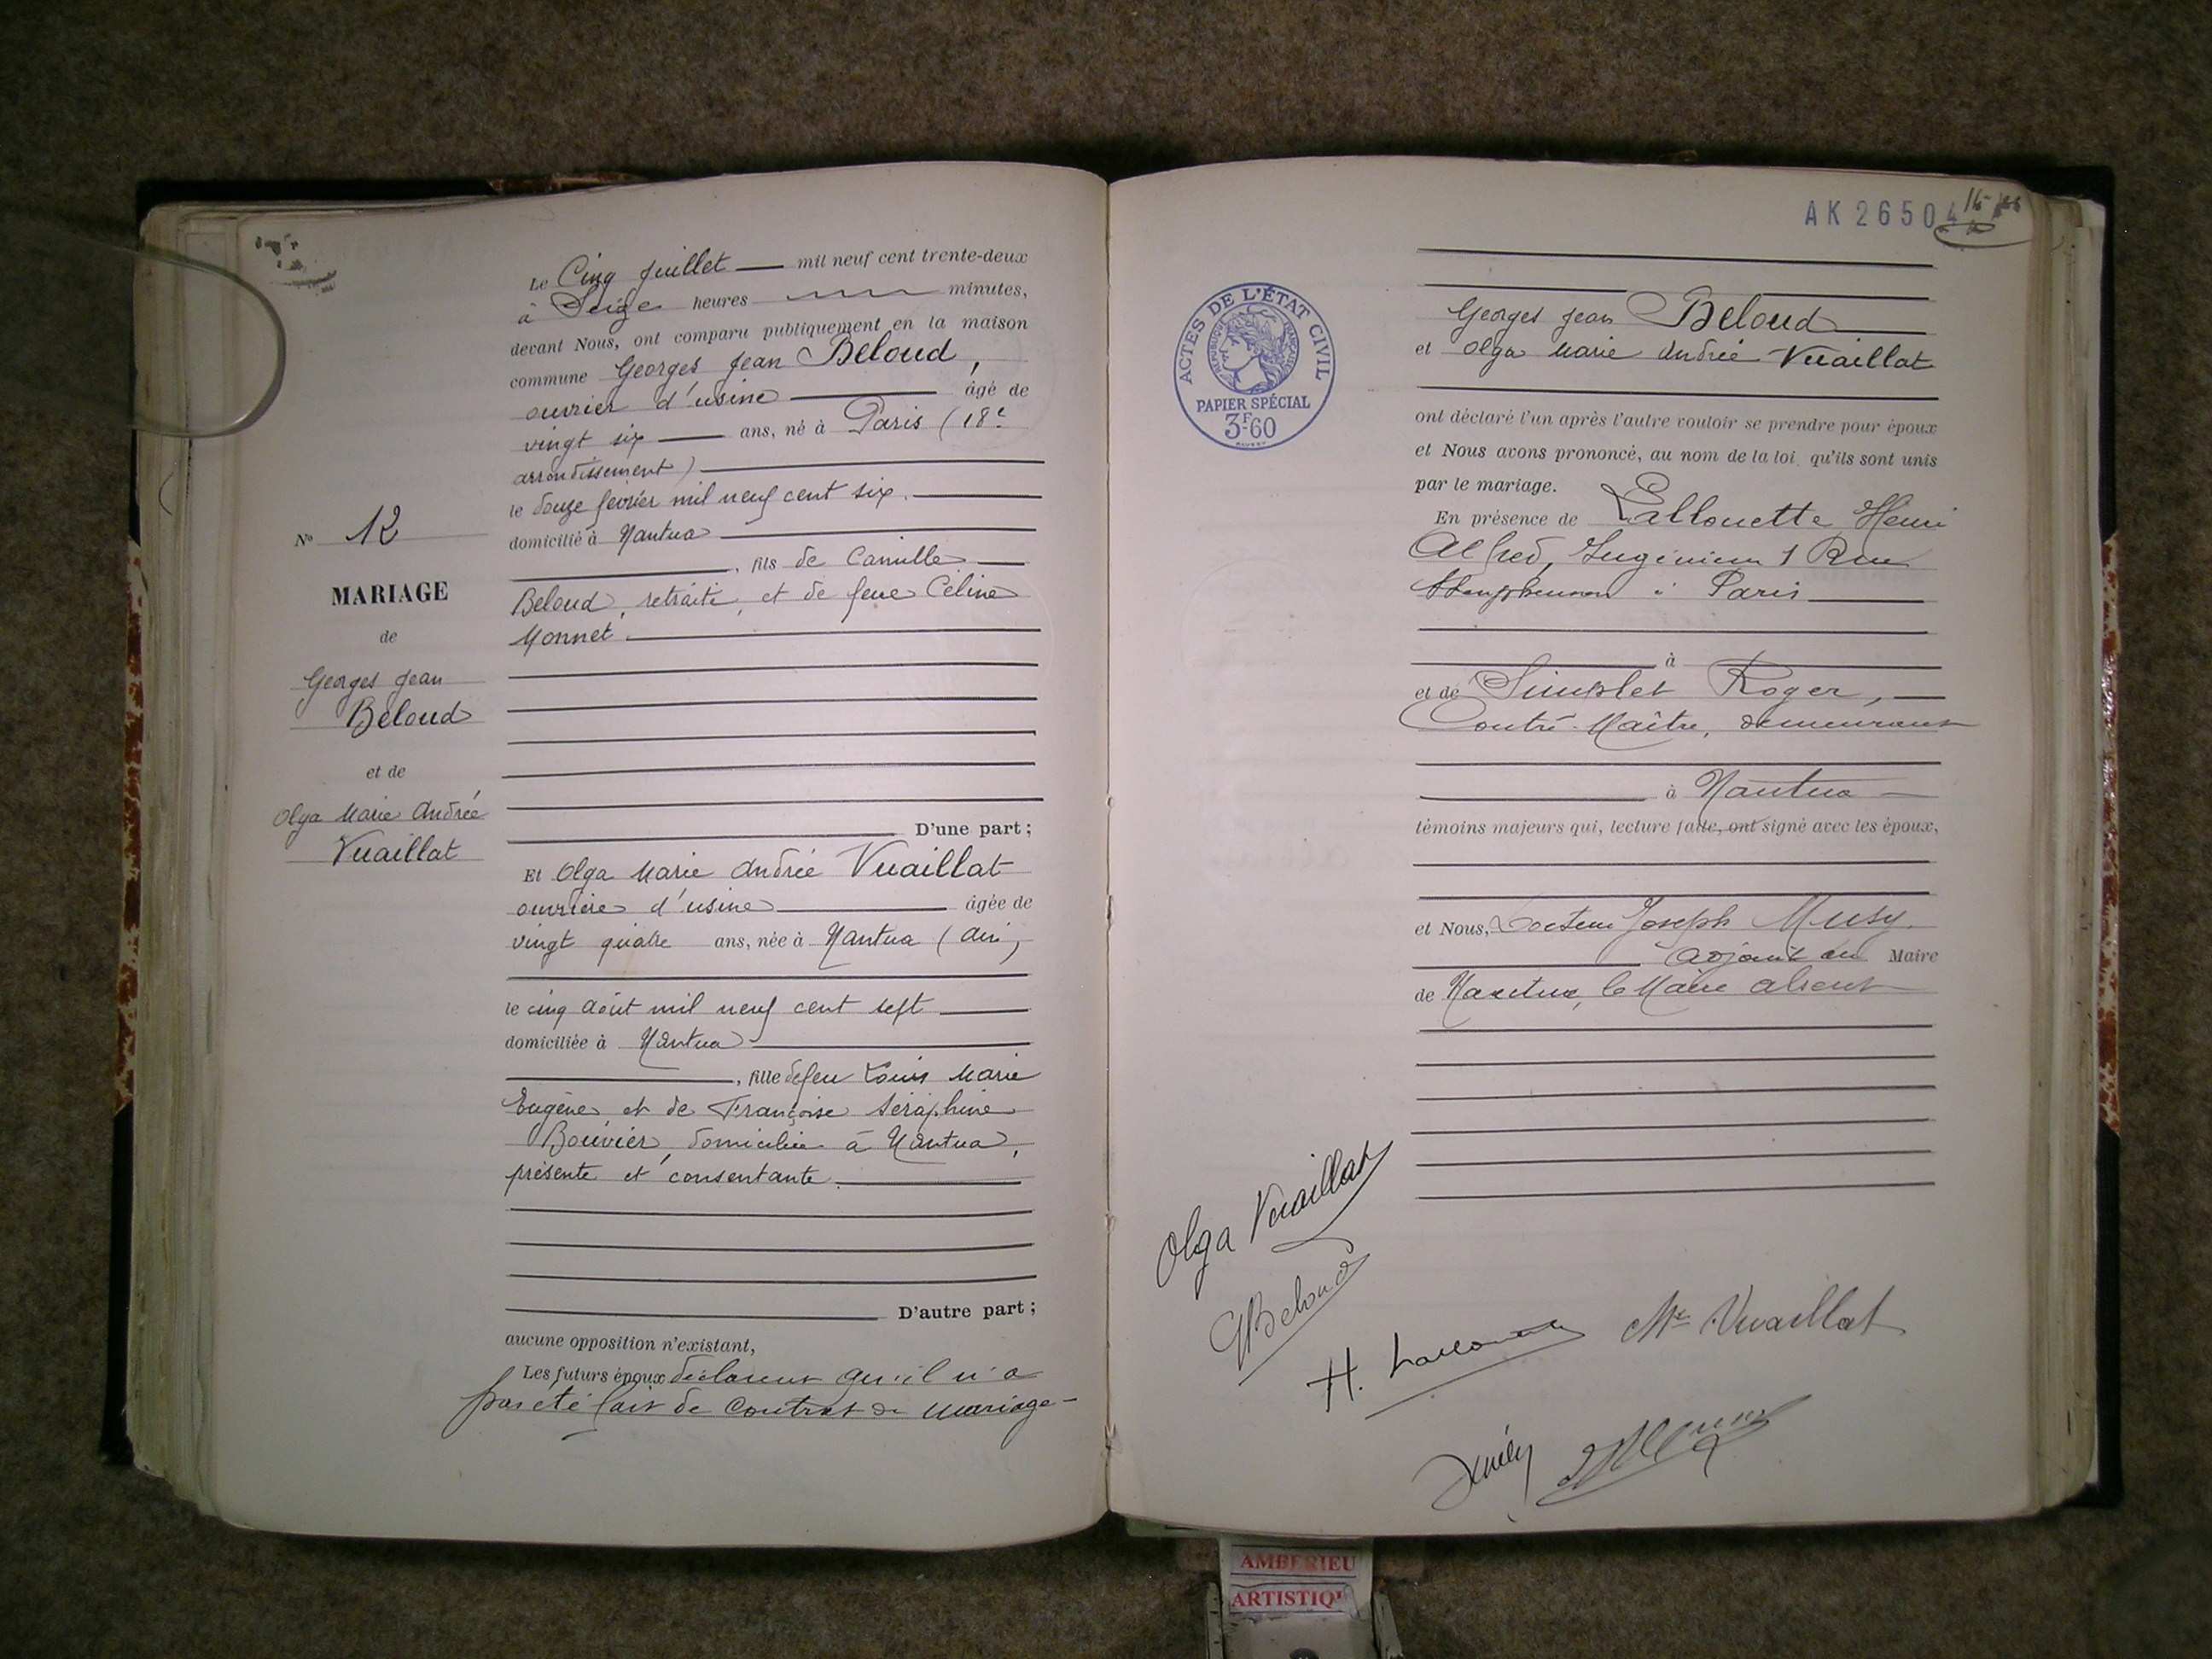 Le Cinq Juillet mil neuf cent trente-deux
à Seize heures minutes,
devant Nous, ont comparu publiquement en la maison
commune Georges Jean Beloud,
ouvrier d'usine âgé de
vingt six ans, né à Paris (18e
arrondissement)
le douze février mil neuf cent six.
domicilié à Nantua
, fils de Camille
Beloud, retraité, et de feue Céline
Monnet.
No 12
MARIAGE
de
Georges Jean
Beloud
et de
Olga Marie Andrée
Vuaillat
D'une part ;
Et Olga Marie Andrée Vuaillat
ouvrière d'usine âgée de
vingt quatre ans, née à Nantua (Ain)
le cinq Août mil neuf cent sept
domiciliée à Nantua
, fille de feu Louis Marie
Eugène et de Françoise Séraphine
Bouvier, domiciliée à Nantua,
présente et consentante.
D'autre part ;
aucune opposition n'existant,
Les futurs époux déclarent qu'il n'a
pas été fait de Contrat de mariage
AK 26504
ACTES DE L'ÉTAT CIVIL
RÉPUBLIQUE FRANÇAISE
PAPIER SPÉCIAL
3F60
Georges Jean Beloud
et Olga Marie Andrée Vuaillat
ont déclaré l'un après l'autre vouloir se prendre pour époux
et Nous avons prononcé, au nom de la loi, qu'ils sont unis
par le mariage.
En présence de Lallouette Henri
Alfred, Ingénieur 1 Rue
à Paris
à
et de Simplet Roger,
Contre-Maître, demeurant
à Nantua
témoins majeurs qui, lecture faite, ont signé avec les époux,
et Nous, Docteur Joseph Musy
adjoint au Maire
de Nantua, le Maire absent
Olga Vuaillat
GBeloud
H. Lallouette
Me Vuaillat
AMBERIEU
ARTISTIQ